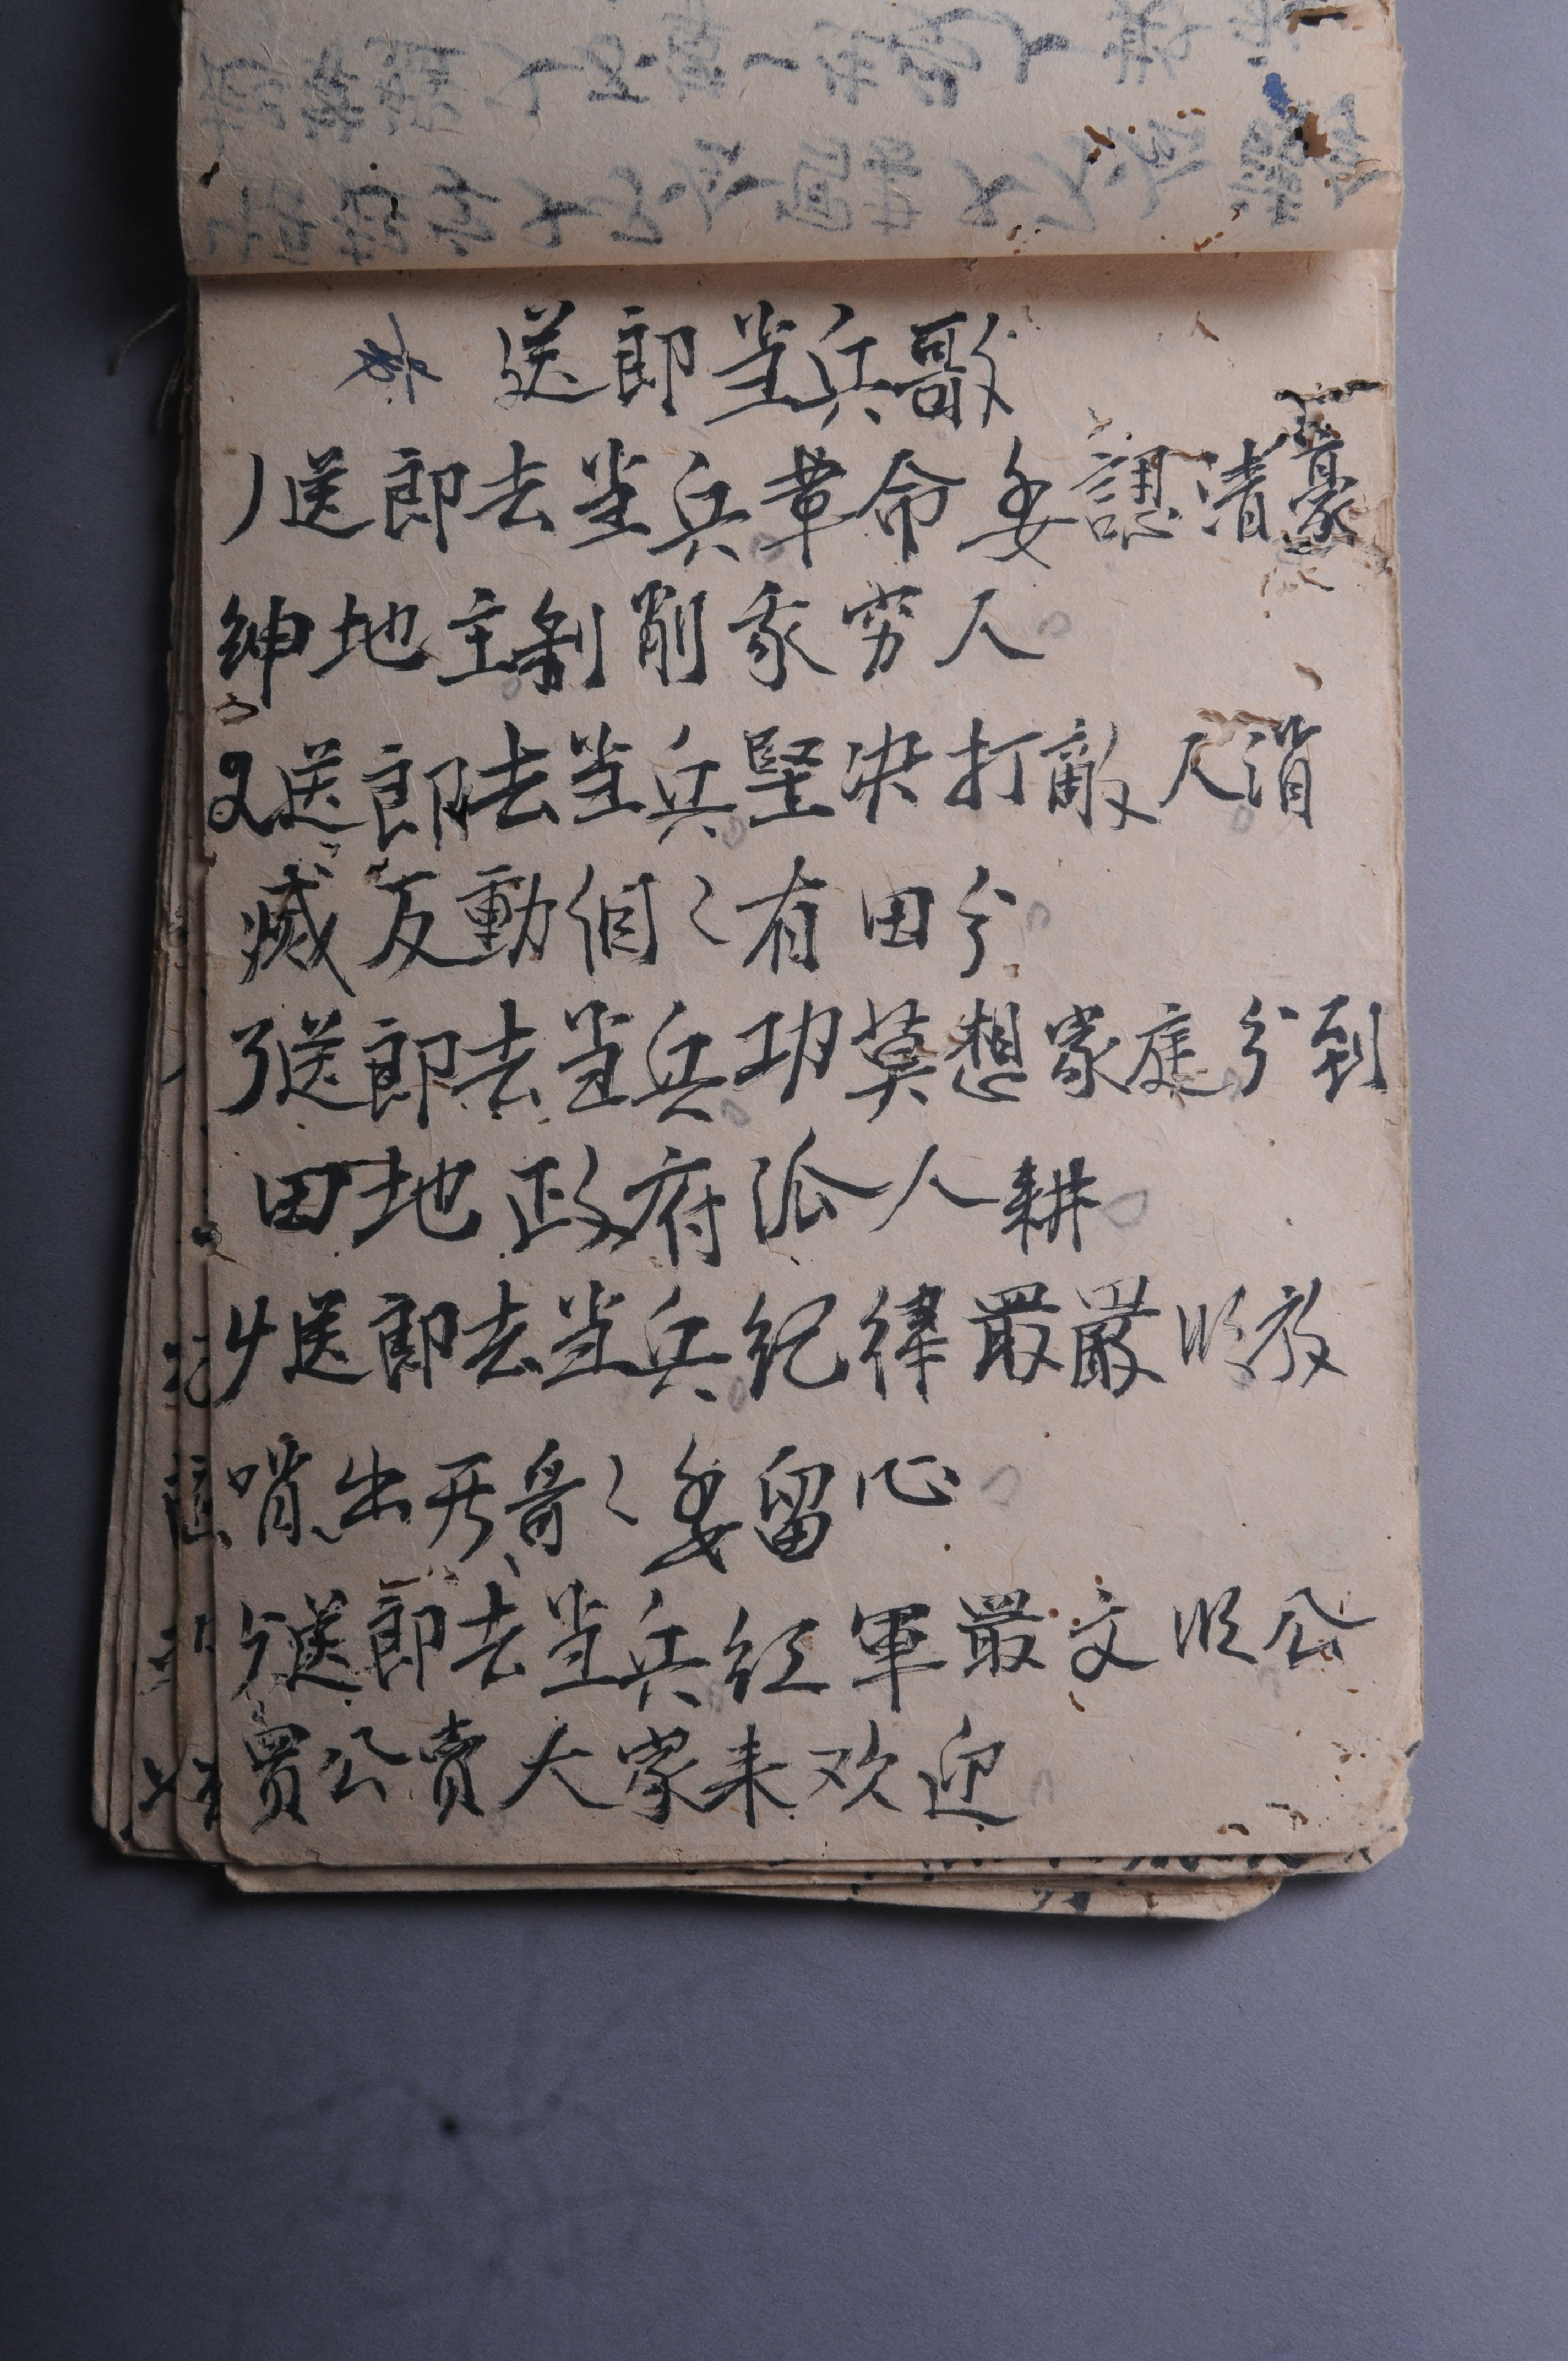 送郎当兵歌
1送郎去当兵革命要認清豪
紳地主剝削我穷人
2送郎去当兵堅决打敵人消
滅反動個〻有田分
3送郎去当兵功莫想家庭分到
田地政府派人耕
4送郎去当兵纪律最嚴明放
哨出差哥〻要留心
5送郎去当兵红軍最文明公
買公賣大家来欢迎